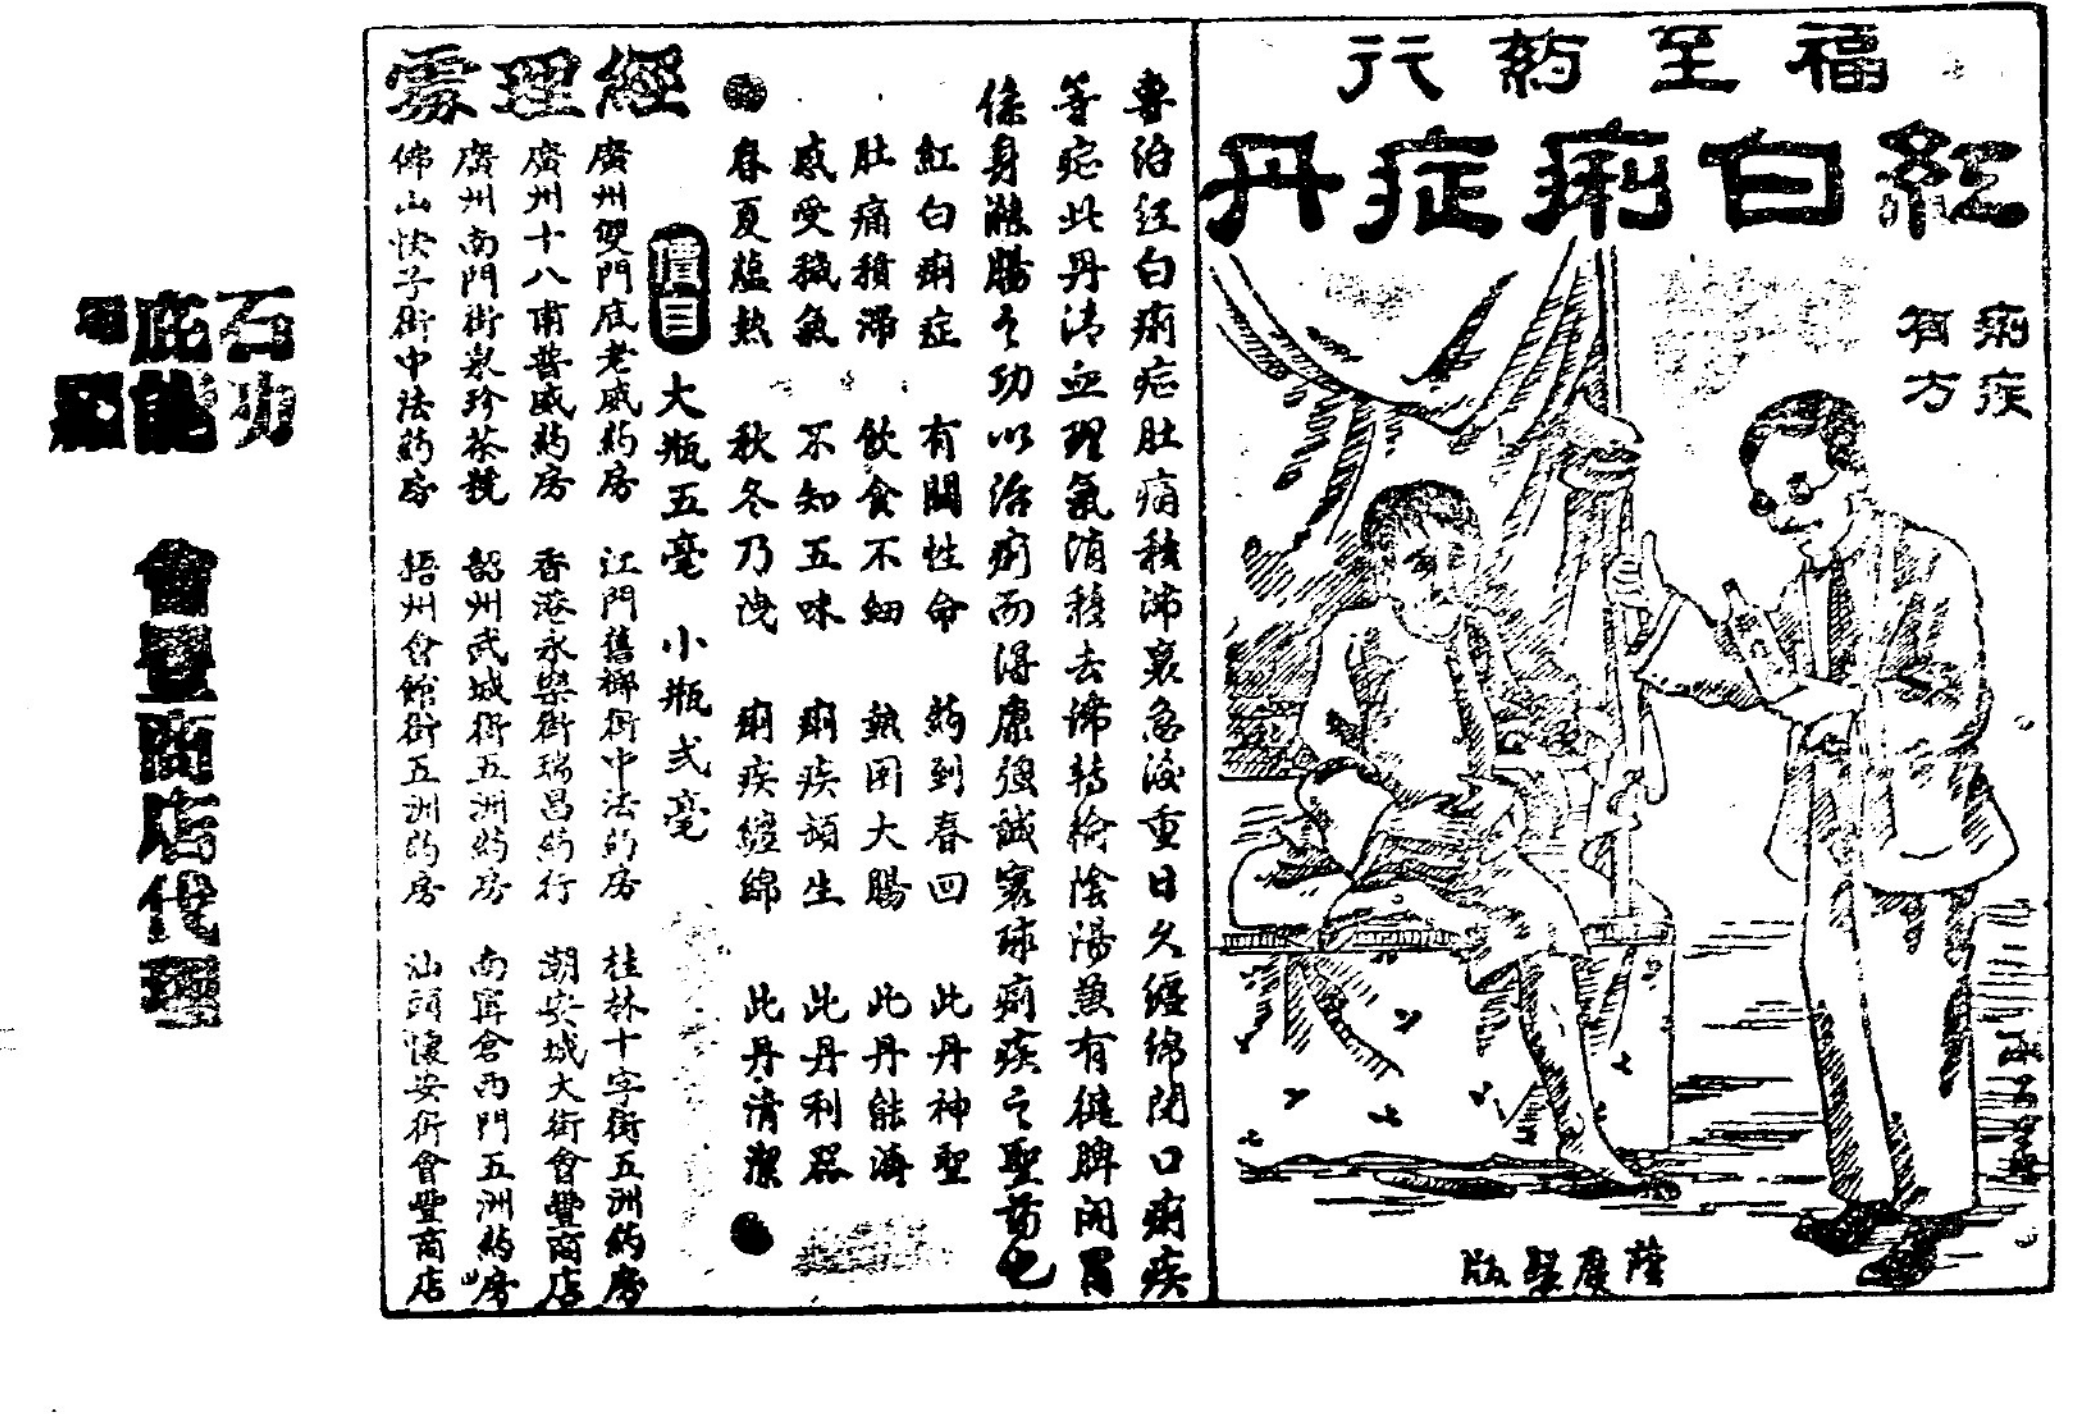 福至葯行
紅白痢症丹
痢疾
有方
蔭慶璧版
專治紅白痢症肚痛積滯裏急後重日久纏綿閉口痢疾
等症此丹清血理氣消積去滯轉輸陰陽兼有健脾開胃
條身濰腸之功以治痢而得康強誠寰球痢疾之聖葯也
紅白痢症 有關性命 葯到春回 此丹神聖
肚痛積滯 飲食不細 熱困大腸 此丹能
感受穢氣 不知五味 痢疾頓生 此丹利器
春夏蘊熱 秋冬乃洩 痢疾纏綿 此丹清潔
大瓶五毫 小瓶弍毫
經理處
廣州雙門底老威葯房 江門舊榔街中法葯房 桂林十字街五洲葯房
廣州十八甫普威葯房 香港永樂街瑞昌葯行 潮安城大街會豐商店
廣州南門街泉珍茶號 韶州武城街五洲葯房 南寧倉西門五洲葯房
佛山快子街中法葯房 梧州會館街五洲葯房 汕頭懷安街會豐商店
石功
庇能
會豐商店代理